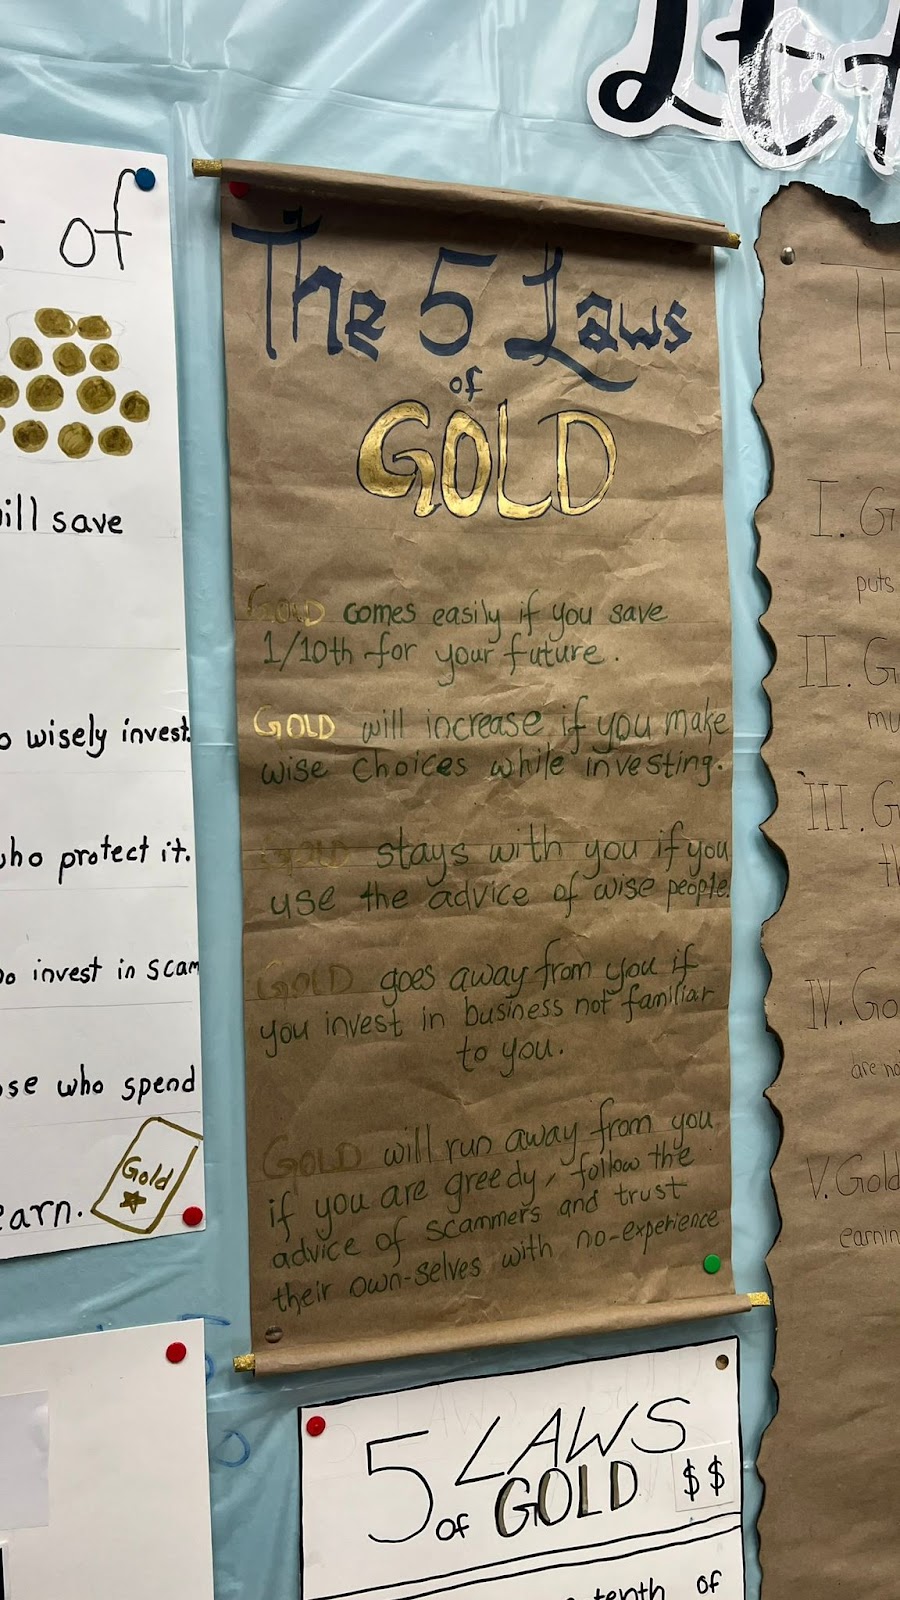 s of
ill save
o wisely invest.
who protect it.
o invest in scam
ose who spend
Gold
earn.
The 5 Laws
of
GOLD
GOLD comes easily if you save
1/10th for your future.
GOLD will increase if you make
wise choices while investing.
GOLD stays with you if you
use the advice of wise people.
GOLD goes away from you if
you invest in business not familiar
to you.
GOLD will run away from you
if you are greedy, follow the
advice of scammers and trust
their own-selves with no-experience
I. G
puts
II. G
mu
III. G
th
IV. Go
are no
V. Gold
earnin
5 LAWS
of GOLD $$
tenth of